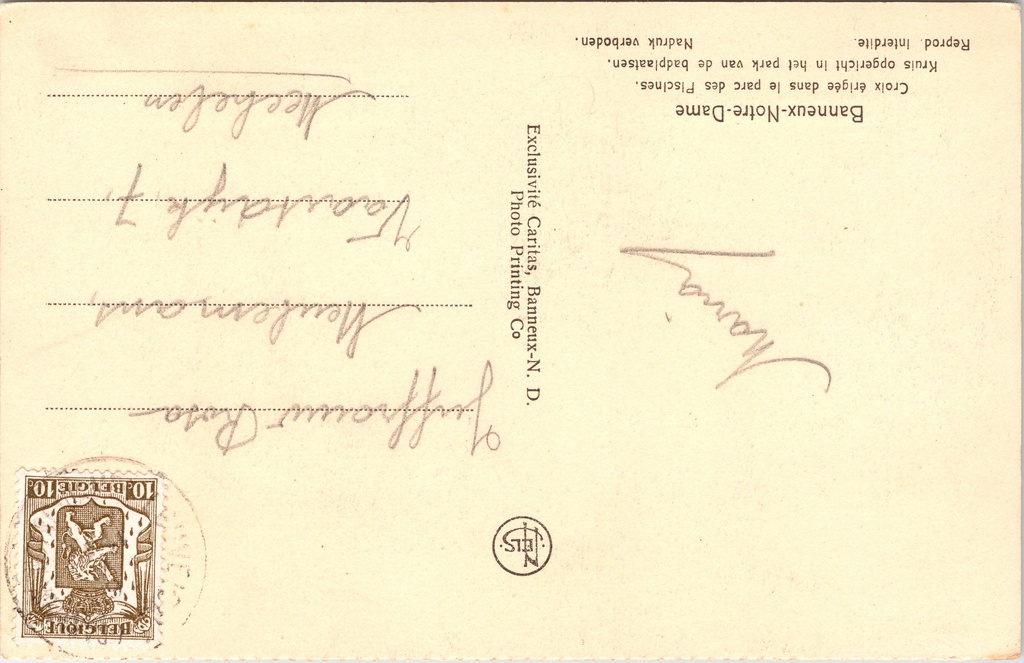 Banneux-Notre-Dame
Croix érigée dans le parc des Piscines.
Kruis opgericht in het park van de badplaatsen.
Reprod. Interdite. Nadruk verboden.
Maria
Exclusivité Caritas, Banneux-N. D.
Photo Printing Co
NELS
BELGIQUE
10c BELGIE 10c
Juffrouw Rosa
Meulemans,
Vaartdijk 7,
Mechelen